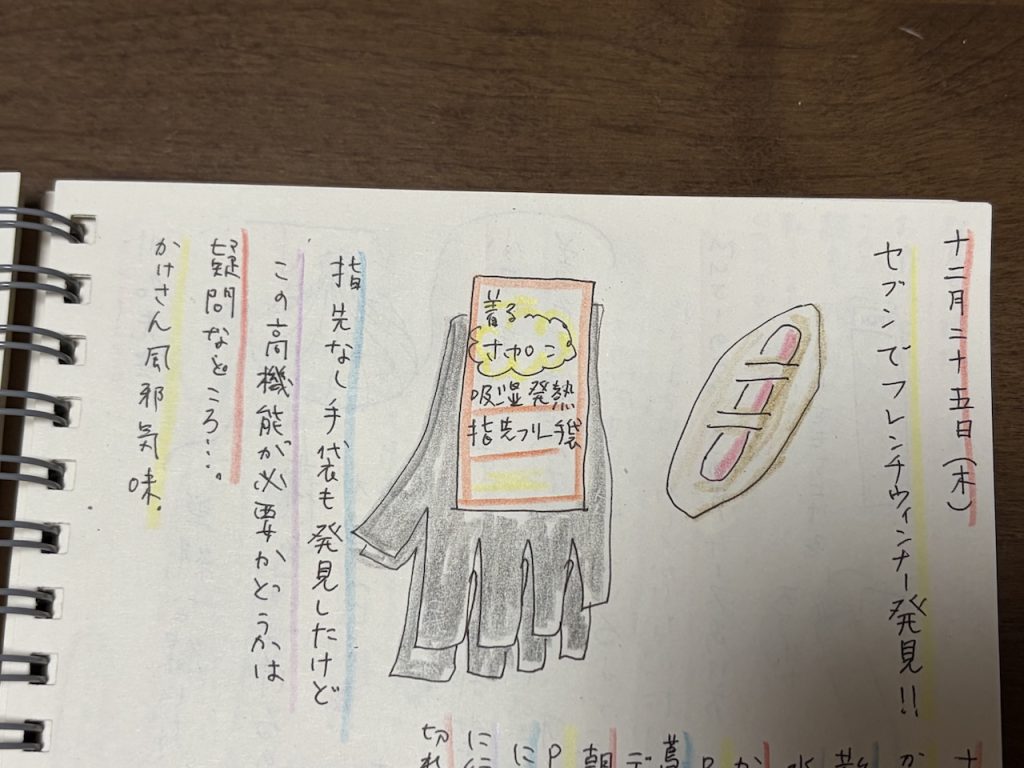 十二月二十五日(木)
セブンでフレンチウィンナー発見!!
着る
ホカロン
吸湿発熱
指先フリー手袋
指先なし手袋も発見したけど
この高機能が必要かどうかは
疑問などころ…。
かけさん風邪気味.
十
か
散
水
か
P
蔦
デ
朝
P
に
に
切れ